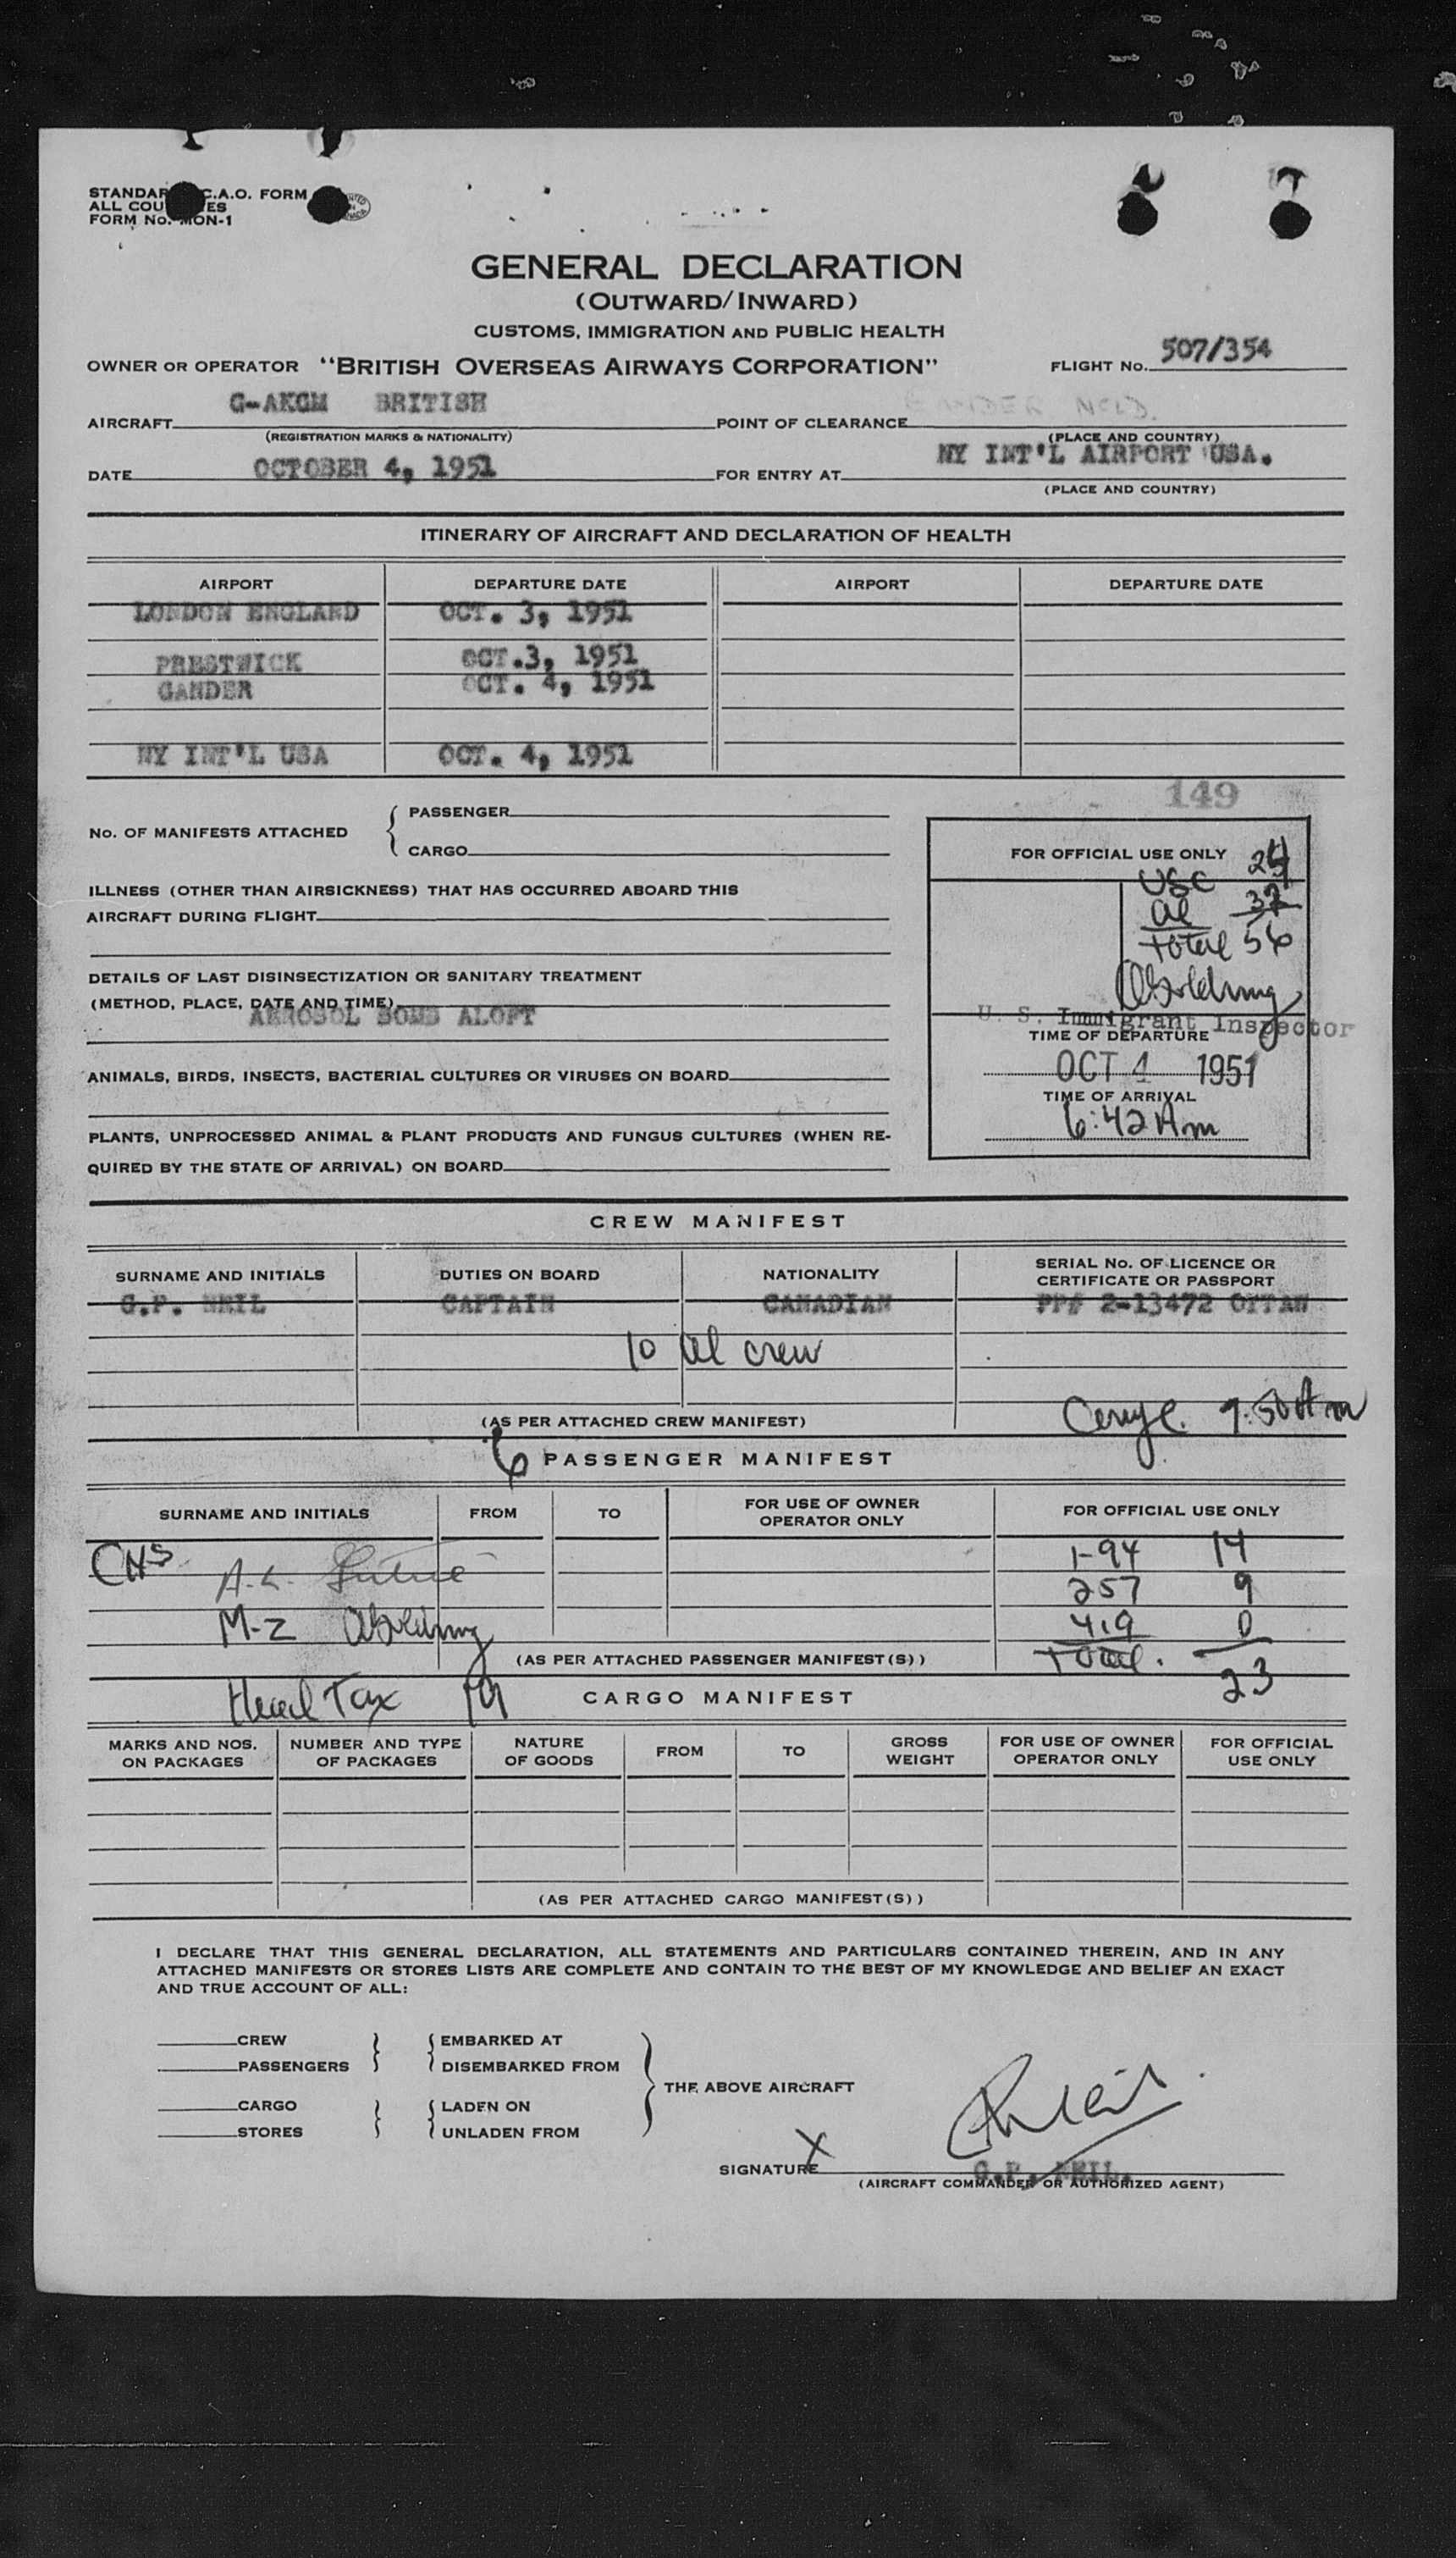 STANDAR C.A.O. FORM
ALL COU ES
FORM No. MON-1
GENERAL DECLARATION
(OUTWARD/INWARD)
CUSTOMS, IMMIGRATION AND PUBLIC HEALTH
OWNER OR OPERATOR "BRITISH OVERSEAS AIRWAYS CORPORATION" FLIGHT NO. 507/354
AIRCRAFT G-AKGM BRITISH POINT OF CLEARANCE GANDER NFLD.
(REGISTRATION MARKS & NATIONALITY) (PLACE AND COUNTRY)
DATE OCTOBER 4, 1951 FOR ENTRY AT NY INT'L AIRPORT USA.
(PLACE AND COUNTRY)
ITINERARY OF AIRCRAFT AND DECLARATION OF HEALTH
AIRPORT DEPARTURE DATE AIRPORT DEPARTURE DATE
LONDON ENGLAND OCT. 3, 1951
PRESTWICK OCT.3, 1951
GANDER OCT. 4, 1951
NY INT'L USA OCT. 4, 1951
149
No. OF MANIFESTS ATTACHED
PASSENGER
CARGO
ILLNESS (OTHER THAN AIRSICKNESS) THAT HAS OCCURRED ABOARD THIS
AIRCRAFT DURING FLIGHT
DETAILS OF LAST DISINSECTIZATION OR SANITARY TREATMENT
(METHOD, PLACE, DATE AND TIME)
AEROSOL BOMB ALOFT
ANIMALS, BIRDS, INSECTS, BACTERIAL CULTURES OR VIRUSES ON BOARD
PLANTS, UNPROCESSED ANIMAL & PLANT PRODUCTS AND FUNGUS CULTURES (WHEN RE-
QUIRED BY THE STATE OF ARRIVAL) ON BOARD
FOR OFFICIAL USE ONLY
USC 24
al 32
total 56
U. S. Immigrant Inspector
TIME OF DEPARTURE
OCT 4 1951
TIME OF ARRIVAL
6:42 Am
CREW MANIFEST
SURNAME AND INITIALS DUTIES ON BOARD NATIONALITY SERIAL No. OF LICENCE OR
CERTIFICATE OR PASSPORT
G.P. NEIL CAPTAIN CANADIAN PP# 2-13472 OTTAW
10 al crew
(AS PER ATTACHED CREW MANIFEST)
7:50 Am
6 PASSENGER MANIFEST
SURNAME AND INITIALS FROM TO FOR USE OF OWNER
OPERATOR ONLY FOR OFFICIAL USE ONLY
CHS 1-94 14
A.L. 257 9
M-Z 419 0
(AS PER ATTACHED PASSENGER MANIFEST(S)) Total. 23
Head Tax 19 CARGO MANIFEST
MARKS AND NOS.
ON PACKAGES
NUMBER AND TYPE
OF PACKAGES
NATURE
OF GOODS
FROM
TO
GROSS
WEIGHT
FOR USE OF OWNER
OPERATOR ONLY
FOR OFFICIAL
USE ONLY
(AS PER ATTACHED CARGO MANIFEST(S))
I DECLARE THAT THIS GENERAL DECLARATION, ALL STATEMENTS AND PARTICULARS CONTAINED THEREIN, AND IN ANY
ATTACHED MANIFESTS OR STORES LISTS ARE COMPLETE AND CONTAIN TO THE BEST OF MY KNOWLEDGE AND BELIEF AN EXACT
AND TRUE ACCOUNT OF ALL:
CREW EMBARKED AT
PASSENGERS DISEMBARKED FROM
THE ABOVE AIRCRAFT
CARGO LADEN ON
STORES UNLADEN FROM
SIGNATURE X G.P. NEIL.
(AIRCRAFT COMMANDER OR AUTHORIZED AGENT)